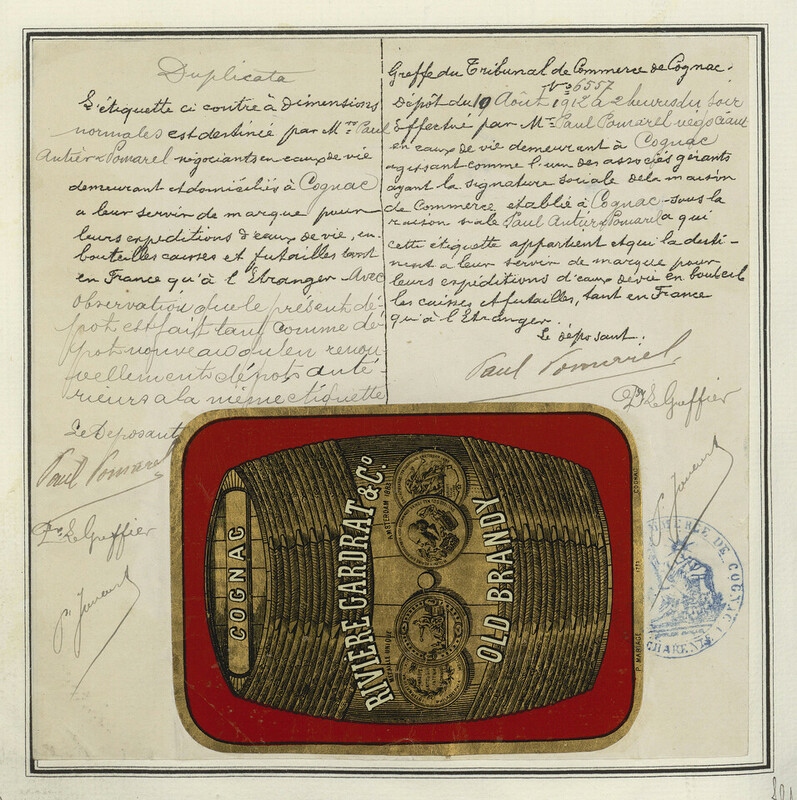 Duplicata
L'étiquette ci contre à dimensions
normales est destinée par Mrs Paul
Antier & Pomarel négociants en eaux de vie
demeurant et domiciliés à Cognac
a leur servir de marque pour
leurs expeditions d'eaux de vie, en
bouteilles caisses et futailles tant
en France qu'à l'Etranger. Avec
observation que le présent dé-
pot est fait tant comme dé-
pot nouveau qu'en renou-
vellement dépots anté-
rieurs a la même étiquette
Le Deposant
Paul Pomarel
Pr Le Greffier
Greffe du Tribunal de Commerce de Cognac.
No 6557
Dépôt du 19 Août 1912 a 2 heures du soir
Effectué par Mr Paul Pomarel négociant
en eaux de vie demeurant à Cognac
agissant comme l'un des associés gérants
ayant la signature sociale de la maison
de Commerce etablié à Cognac sous la
raison s ale Paul Antier & Pomarel a qui
cette étiquette appartient et qui la desti-
nent a leur servir de marque pour
leurs expéditions d'eaux de vie en bouteil
les caisses et futailles, tant en France
qu'à l'Etranger.
Le déposant.
Paul Pomarel
Pr Le Greffier
COGNAC
RIVIÈRE GARDRAT & Co
AMSTERDAM
OLD BRANDY
P. MARIAGE
COGNAC
COMMERCE DE COGNAC
CHARENTE